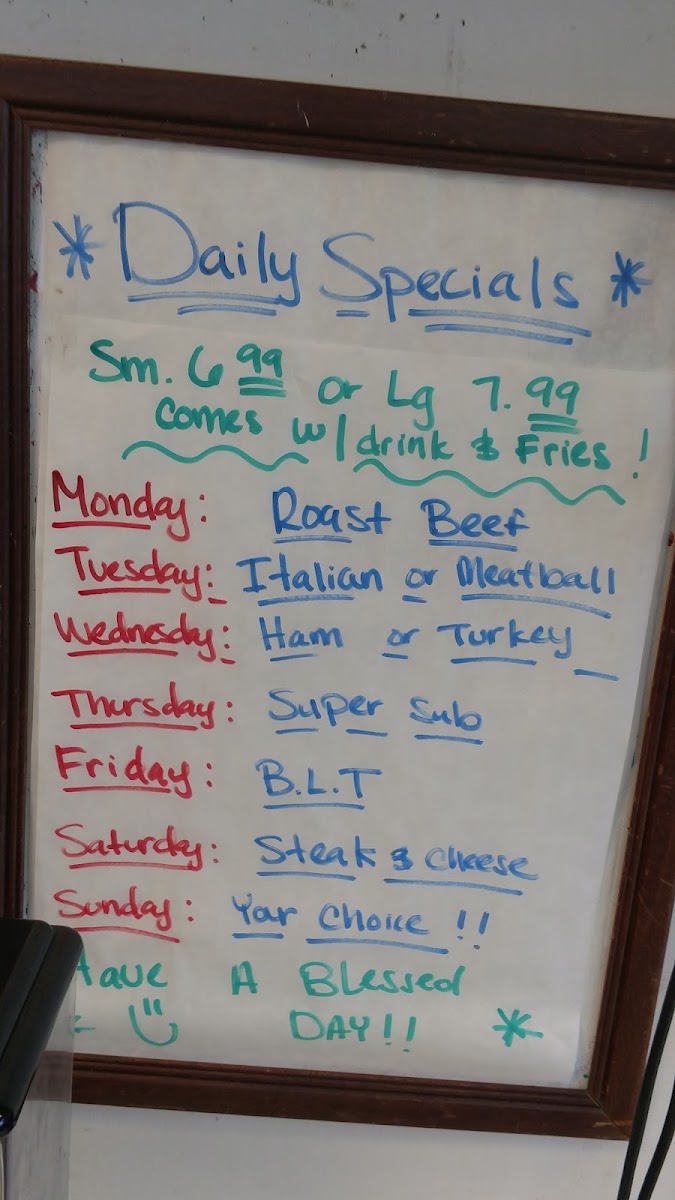 * Daily Specials *
Sm. 6 99 or Lg 7.99
comes w/ drink & Fries !
Monday: Roast Beef
Tuesday: Italian or Meatball
Wednesday: Ham or Turkey
Thursday: Super Sub
Friday: B.L.T
Saturday: Steak & cheese
Sunday: Your Choice !!
Have A Blessed
DAY!! *